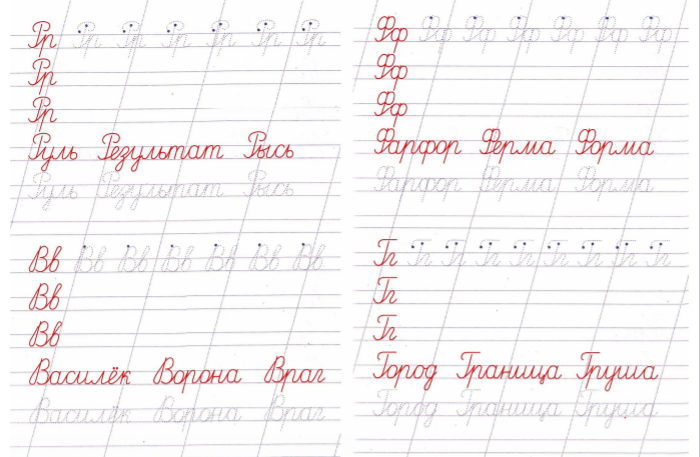 Рр Рр Рр Рр Рр Рр Рр
Рр
Рр
Руль Результат Рысь
Руль Результат Рысь
Фф Фф Фф Фф Фф Фф Фф
Фф
Фф
Фарфор Ферма Форма
Фарфор Ферма Форма
Вв Вв Вв Вв Вв Вв Вв
Вв
Вв
Василёк Ворона Враг
Василёк Ворона Враг
Гг Гг Гг Гг Гг Гг Гг Гг Гг
Гг
Гг
Город Граница Груша
Город Граница Груша